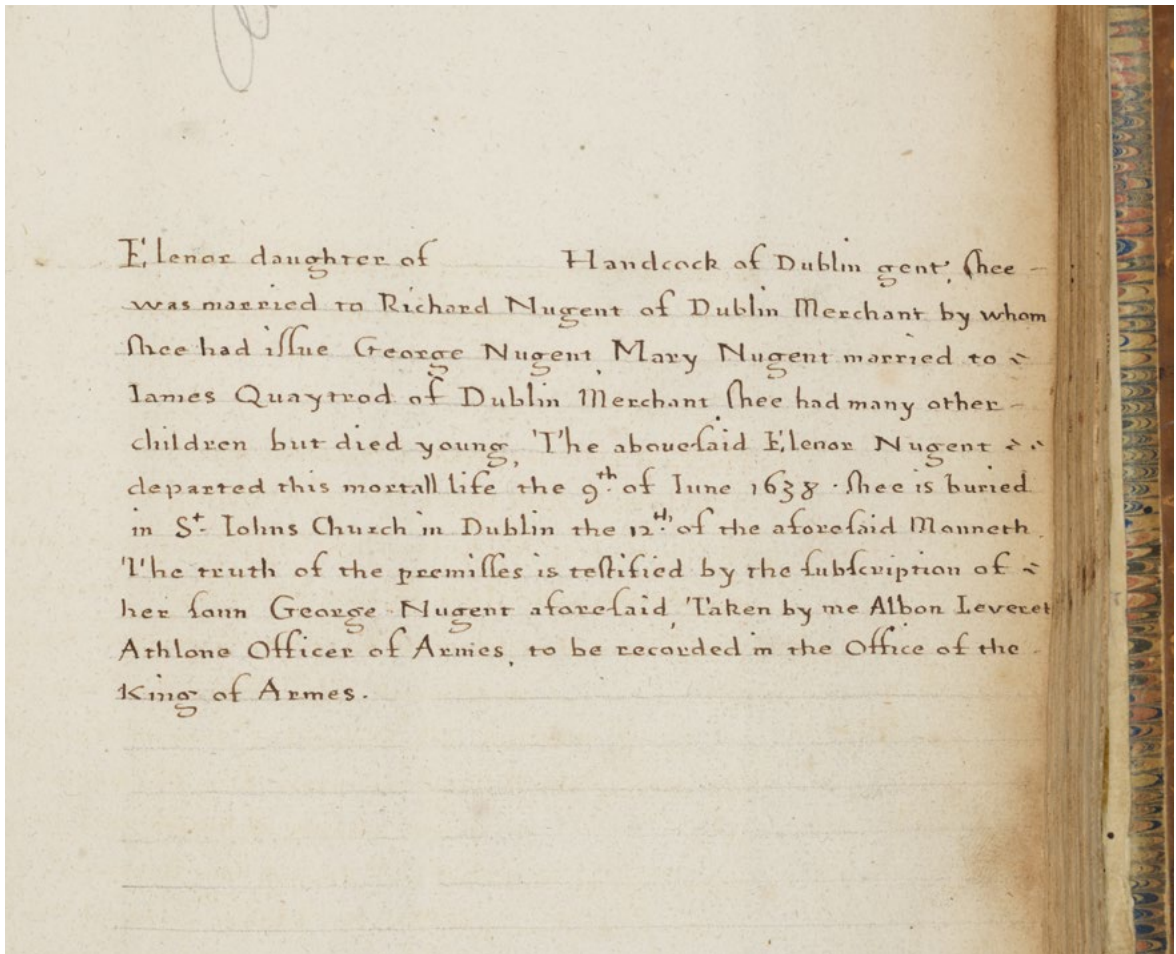 Elenor daughter of Handcock of Dublin gent, shee -
was married to Richard Nugent of Dublin Merchant by whom
shee had issue George Nugent, Mary Nugent married to ~
Iames Quaytrod of Dublin Merchant shee had many other -
children but died young, The abouesaid Elenor Nugent ~ ~
departed this mortall life the 9th. of Iune 1638 . shee is buried
in St. Iohns Church in Dublin the 12th. of the aforesaid Monneth.
The truth of the premisses is testified by the subscription of ~
her sonn George Nugent aforesaid, Taken by me Albon Leveret
Athlone Officer of Armes, to be recorded in the Office of the -
King of Armes.